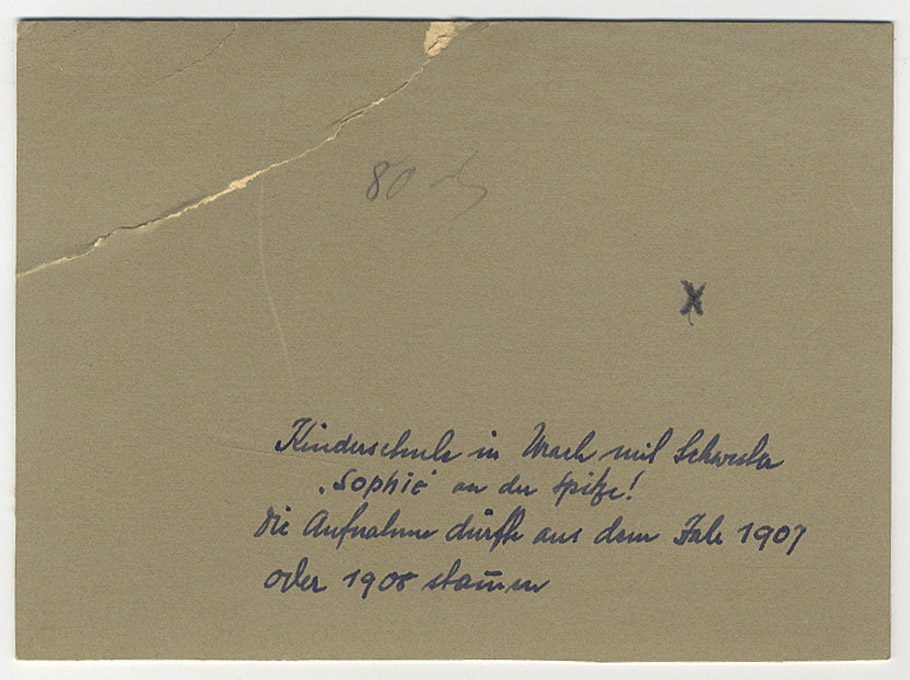 80
x
Kinderschule in Urach mit Schwester
"Sophie" an der Spitze!
Die Aufnahme dürfte aus dem Jahre 1907
oder 1908 stam̄en